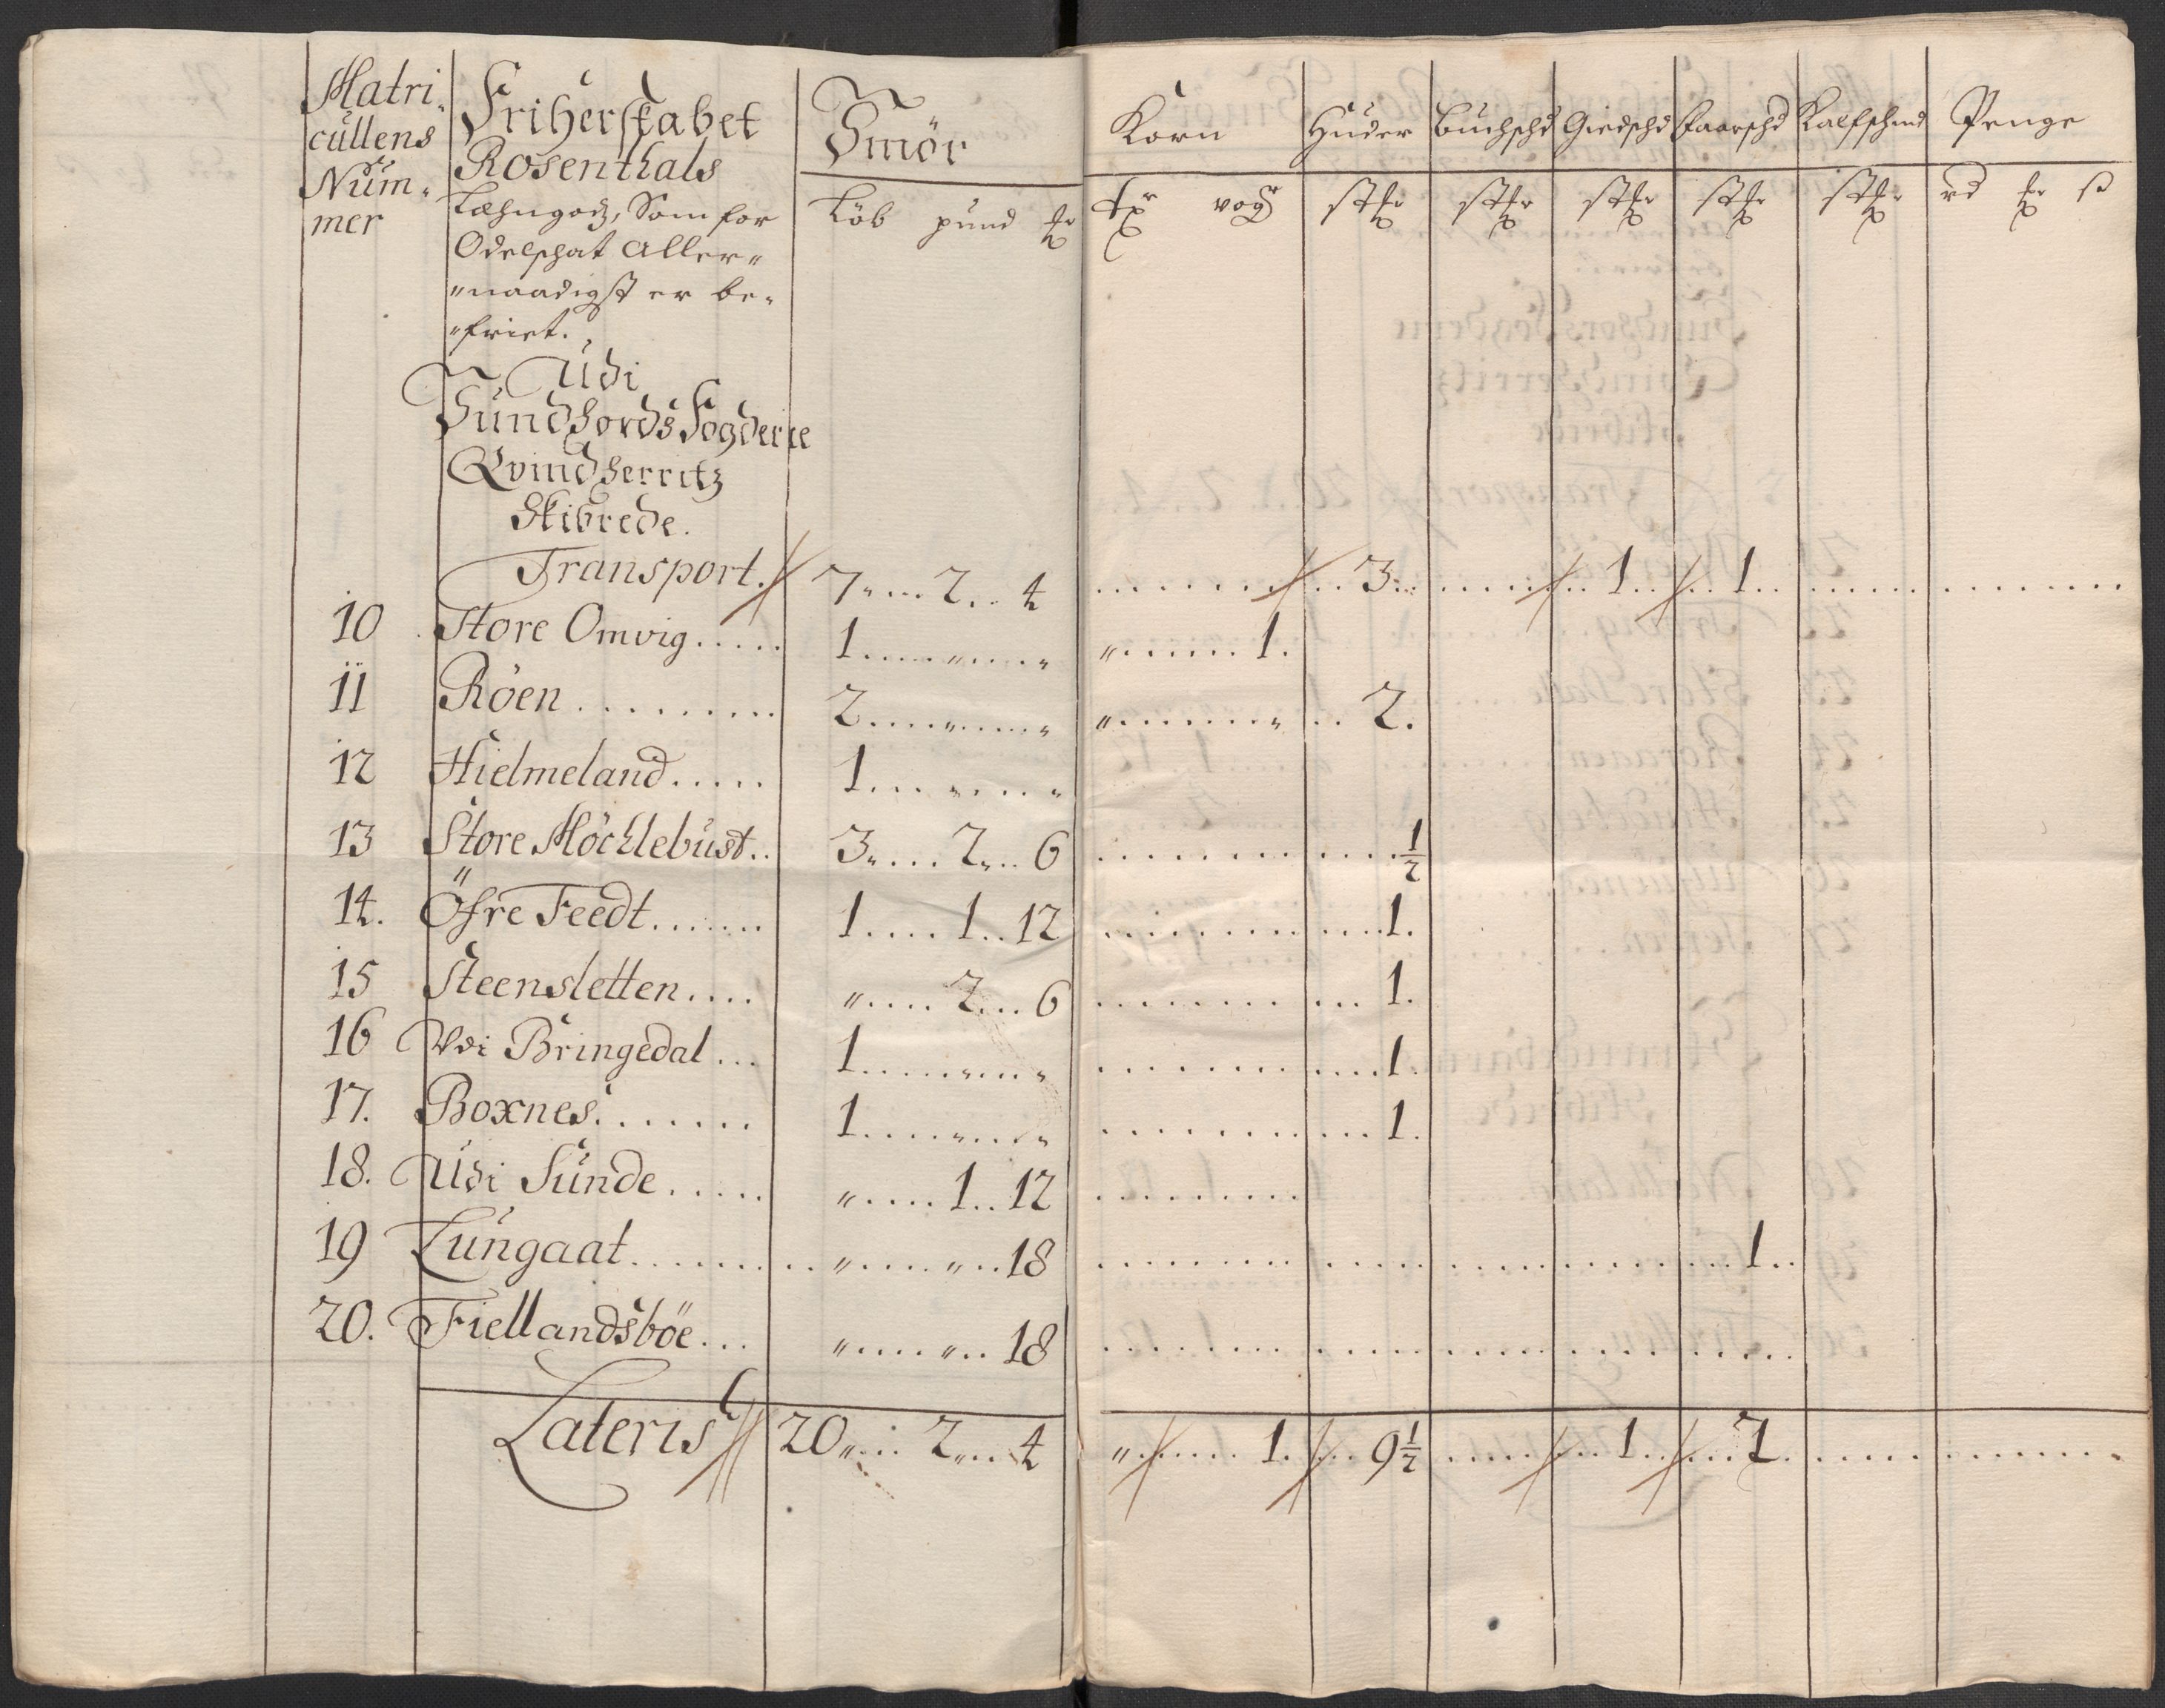 Matri-
cullens
Num-
mer
Friherskabet
Rosenthals
Læhngodz, Som for
Odelschat Aller-
naadigst er be-
friet.
Udi
Sundhords Fogderie
Qvindherritz
Skibrede.
Smör
Löb pund
Korn Huder Buchschd Giedschd Faarschd Kalfschind Penge
vog
rd ß
Transport. 7 " 2 .. 4 3 1 1
10 Store Omvig 1 " " " 1.
11 Röen 2 " " " " 2.
12 Hielmeland 1 " "
13 Store Möchlebust 3 " 2 " 6 1/2
14. Öfre Feedt 1 1 12 1.
15 Steensletten " 2 6 1.
16 Vdi Bringedal 1 " " 1.
17. Boxnes 1 " " 1.
18. Udi Sunde " 1 12
19 Lungaat " " 18 1
20. Fiellandsböe " " 18
Lateris 20 " 2 " 4 " 1. 9 1/2 1 2.